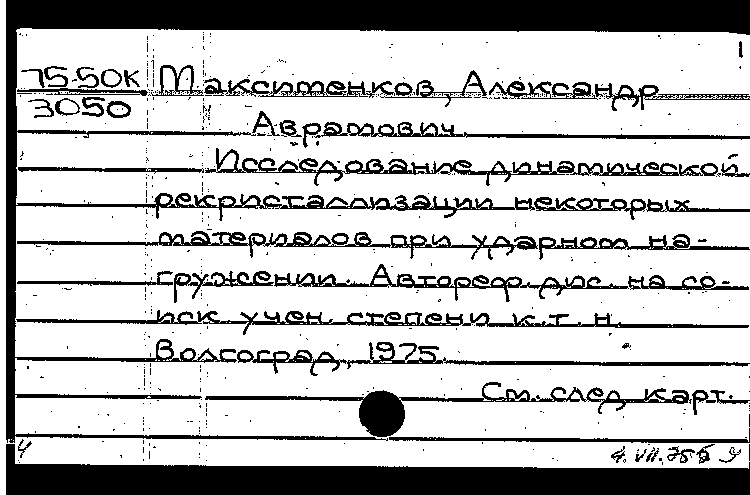 1
75-50К Максименков, Александр
3050 Аврамович.
Исследование динамической
рекристаллизации некоторых
материалов при ударном на-
гружении. Автореф. дис. на со-
иск. учен. степени к.т.н.
Волгоград, 1975.
См. след. карт.
4